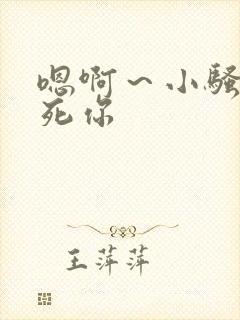 嗯啊～小骚
死你
王萍萍